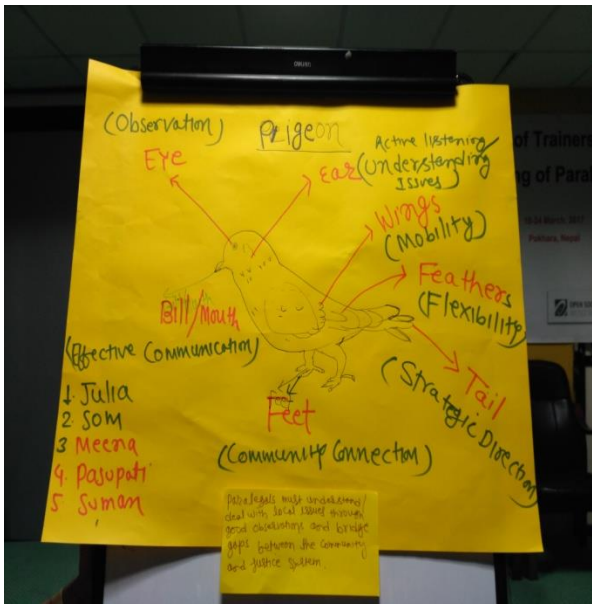 (Observation)
Pigeon
Eye
Ear
Active listening/
(Understanding
Issues)
Wings
(Mobility)
Feathers
(Flexibility)
Bill/Mouth
(Effective Communication)
Tail
(Strategic Direction)
Feet
(Community Connection)
1. Julia
2. Som
3 Meena
4. Pasupati
5 Suman
Paralegals must understand/
deal with local issues through
good observations and bridge
gaps between the community
and justice system.
of Trainers
ng of Paral
10-24 March 2017
Pokhara, Nepal
OPEN